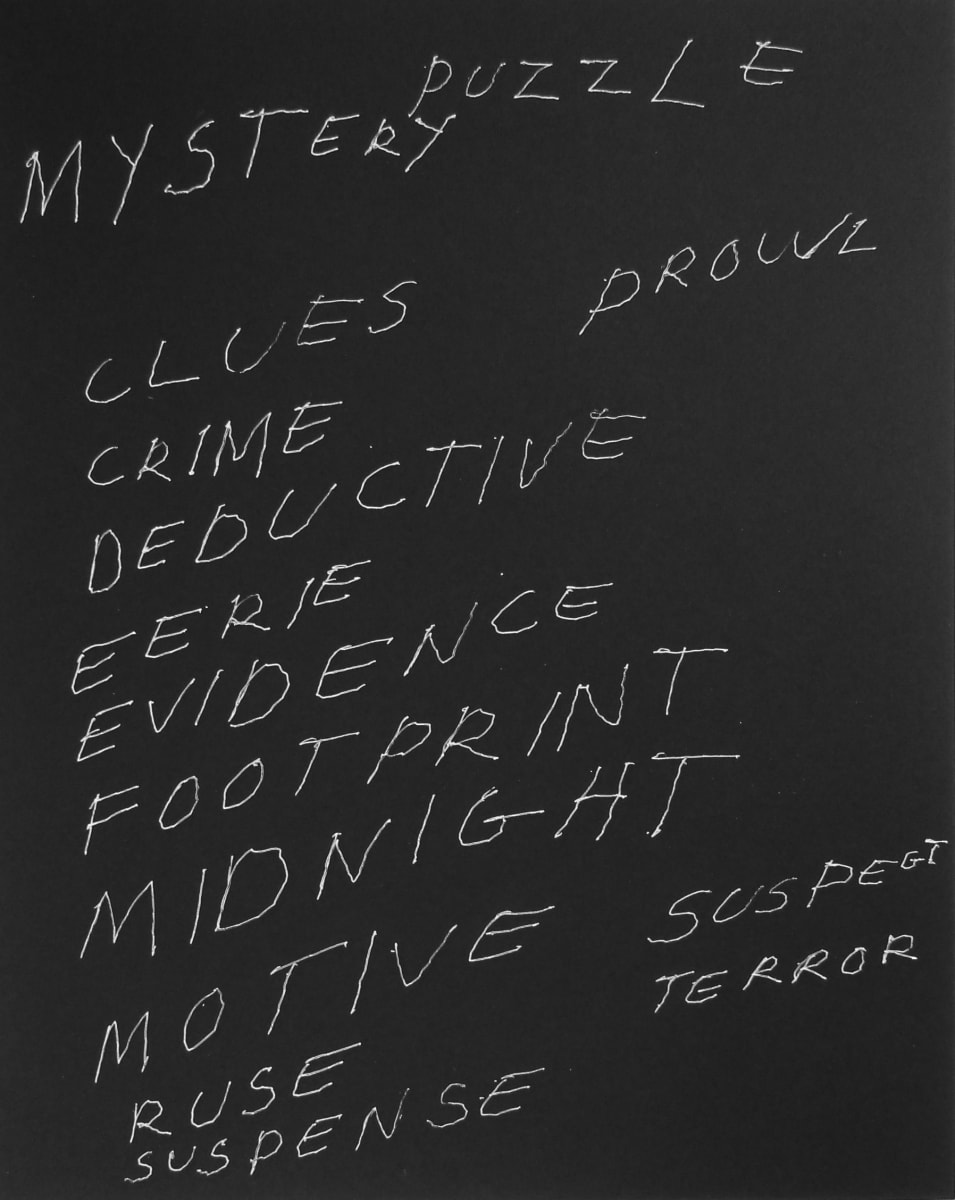 MYSTERY PUZZLE
PROWL
CLUES
CRIME
DEDUCTIVE
EERIE
EVIDENCE
FOOTPRINT
MIDNIGHT
MOTIVE
SUSPECT
TERROR
RUSE
SUSPENSE